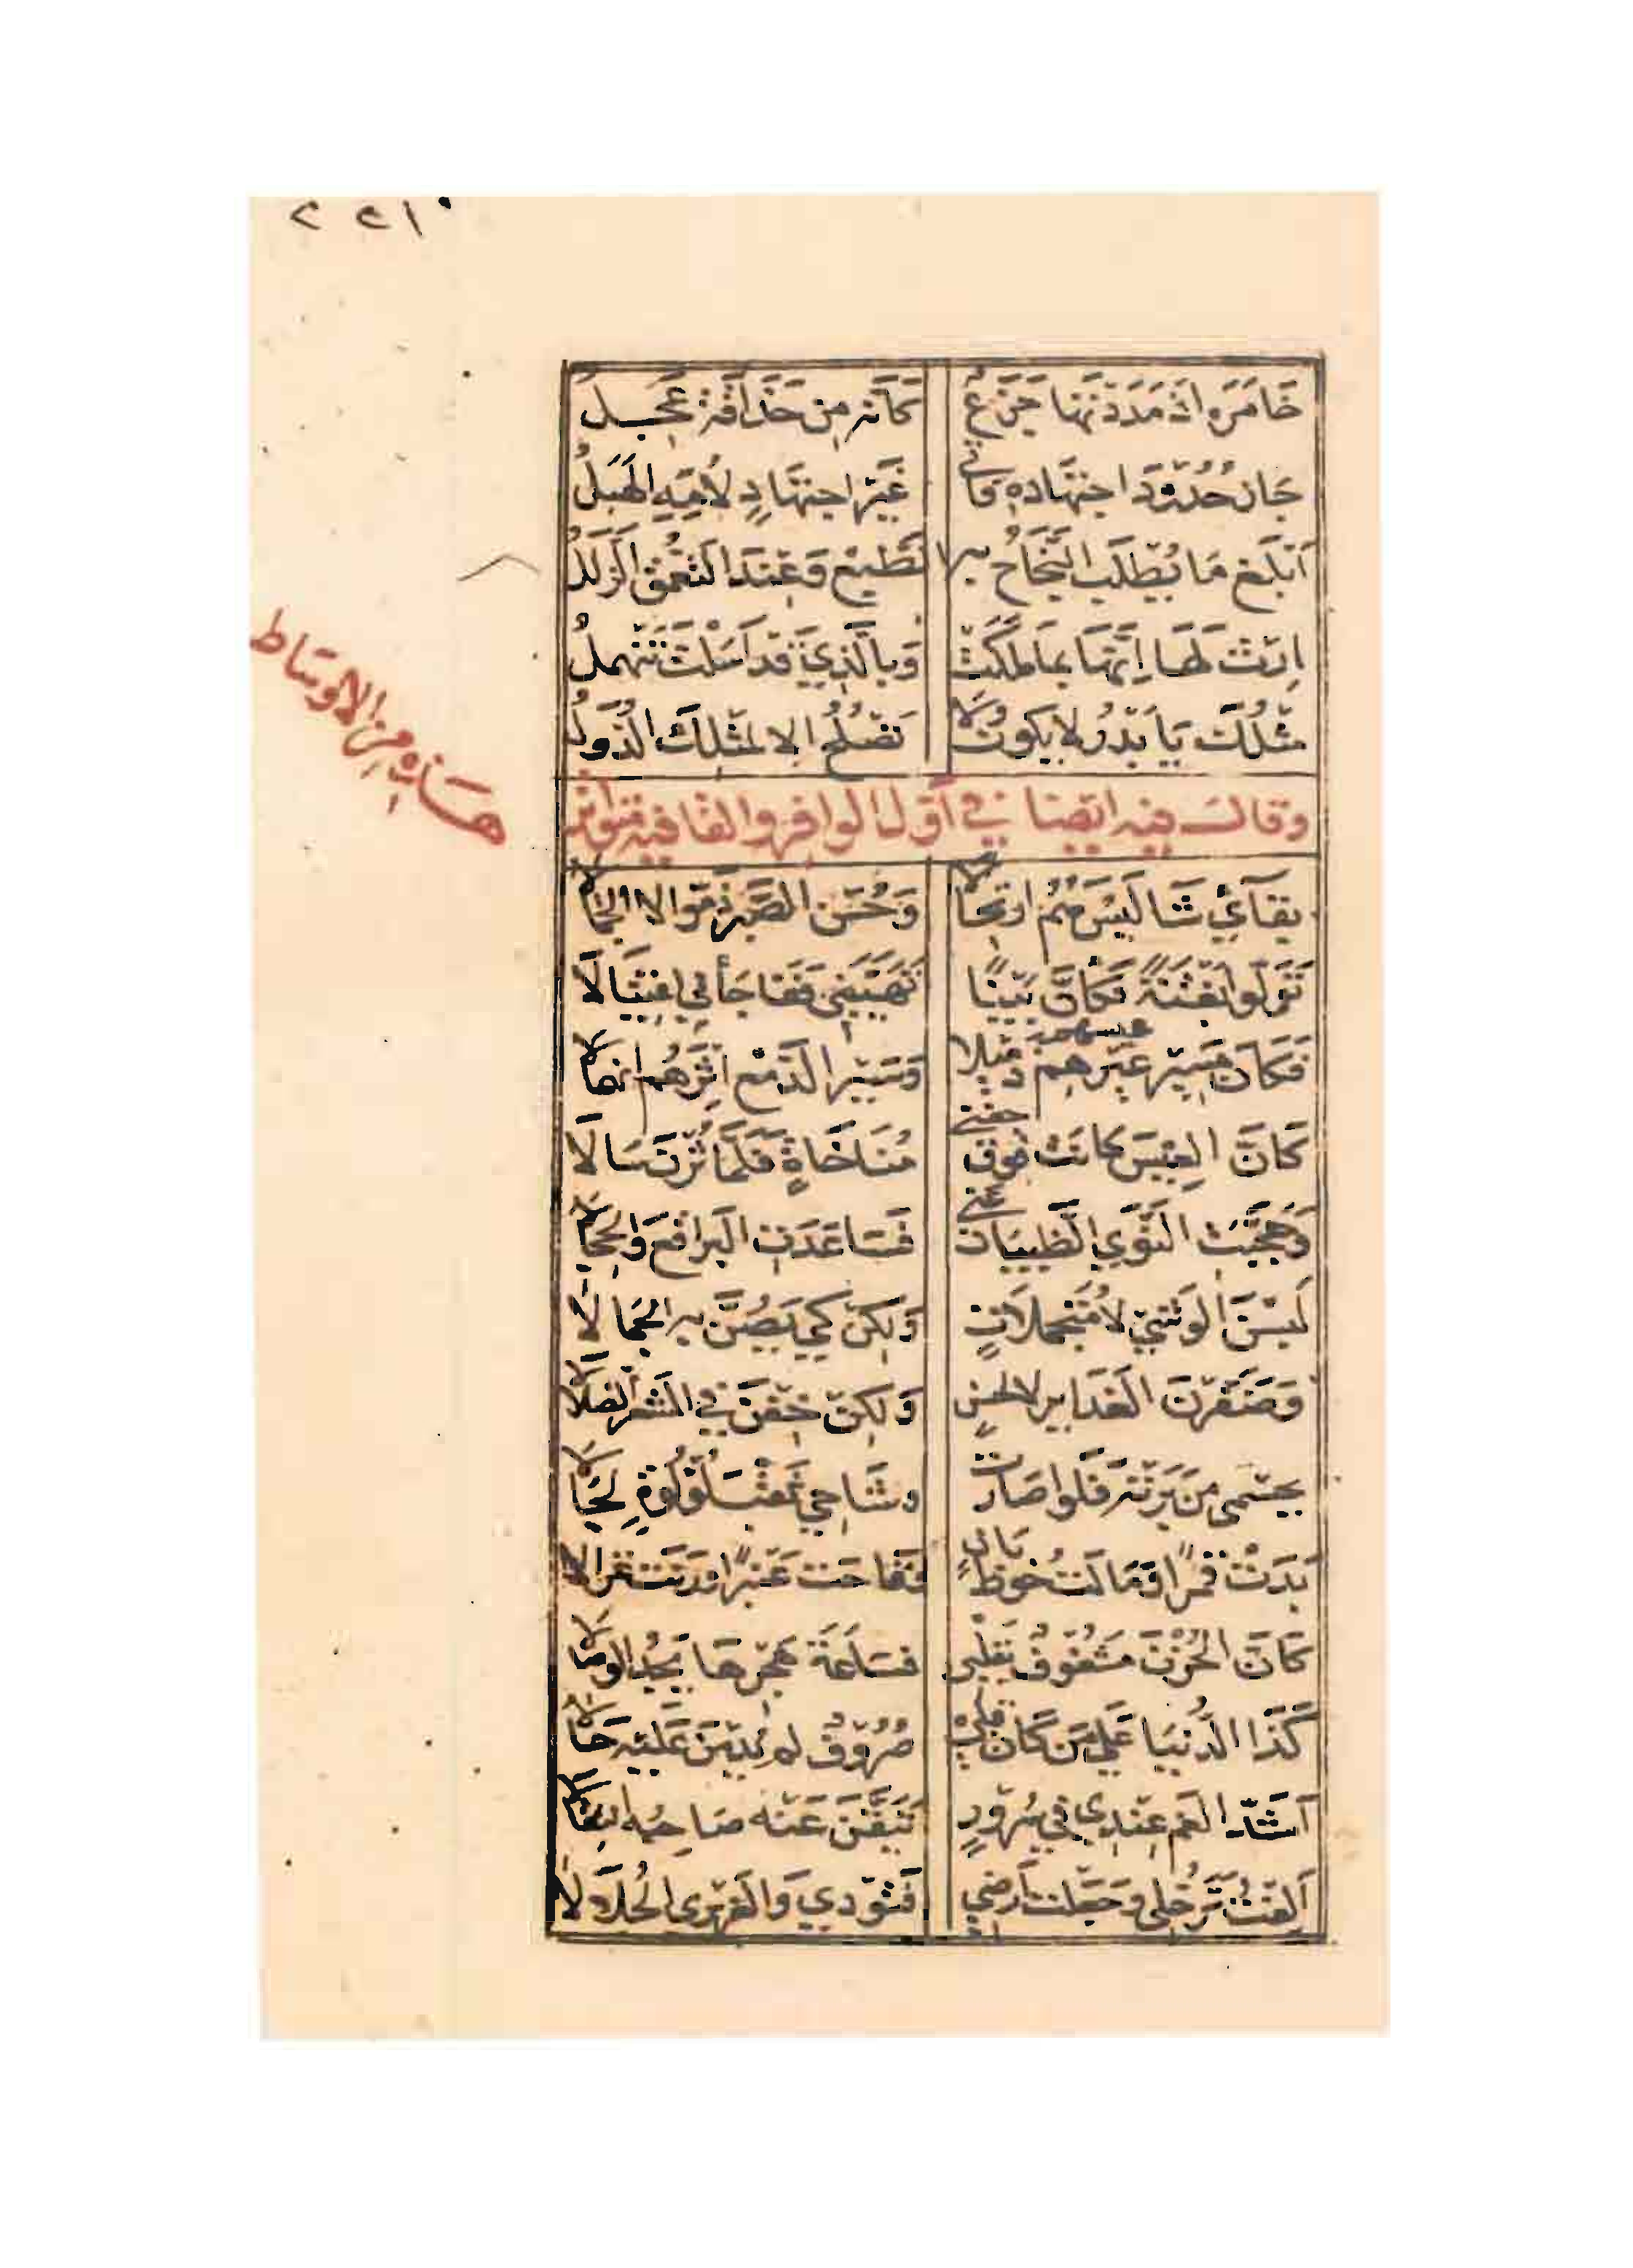 ٢٢١
خَامَرَه اذ مَدَدتها جَزَعٌ كَأنه مِن حَذاقةٍ عَجِلُ
جَازَ حُدُودَ اجتهَاده فأتى غَيرَ اجتهَادٍ لأُمِّهِ الهَبَلُ
اَبلَغ مَا يُطلَب النَّجَاحُ به الطَبع وَعِندَ التعَمُّق الزلَلُ
اِرثِ لَهَا اِنّهَا بما ملكَت وَبالّذِي قد اَسَلتَ تنهملُ
مثلُكَ يَا بَدرُ لا يكونُ وَلا تَصلُحُ الا لمثلِكَ الدُّوَلُ
وقال فيه ايضا في أول الوافر والقافية متواتر
هذه من الاوساط
بقآئي شَا لَيسَ هُمُ ارتحالا وَحُسنَ الصَّبر زمّوا لا الجمالا
تَوَلوا بَغتَةً فكَأنّ بَينًا تَهَيَّبَني فَفاجَأني اغتيَالَا
فَكَان مَسِير عِيسهم ذميلا وَسَير الدّمع اثرَهُم انهمالا
كَانَّ العِيسَ كانت فوق جفني مُنَاخَاةٍ فَلمَّا ثُرنَ سَالَا
وَحَجّبَت النَّوَي الظبيَات عني فسَاعَدَت البَراقعَ وَالحِجالا
لَبسنَ الوَشيَ لا مُتجملَاتٍ وَلكِن كي يَصُنَّ به الجَمالَا
وَضَفّرنَ الغَدايرَ لا لحسنٍ وَلكِن خِفنَ في الشعر الضلالا
بجسمي من بَرَته فَلَو اصَارت وشَاحي ثقبَ لُؤلُؤةٍ لَجالا
بَدَت قمَرًا وَمَالت خُوطَ بَانٍ وَفاحَت عَنبرًا وَرَنت غزالا
كَأنّ الحُزنَ مَشغُوفٌ بقَلبي فسَاعَةَ هَجرهَا يجدُ الوصالا
كَذَا الدُّنيَا عَلي مَن كَان قبلي صُرُوفٌ لم يُدِمنَ عَليه حَالا
اَشَدُّ الغم عِندِي في سُرُورٍ تَيقَّنَ عَنه صَاحِبُه انتقالا
اَلِفتُ تَرَحُّلي وَجَعَلت اَرضي قُتُودِي وَالغُرَيرِيَّ الجُلَالَا